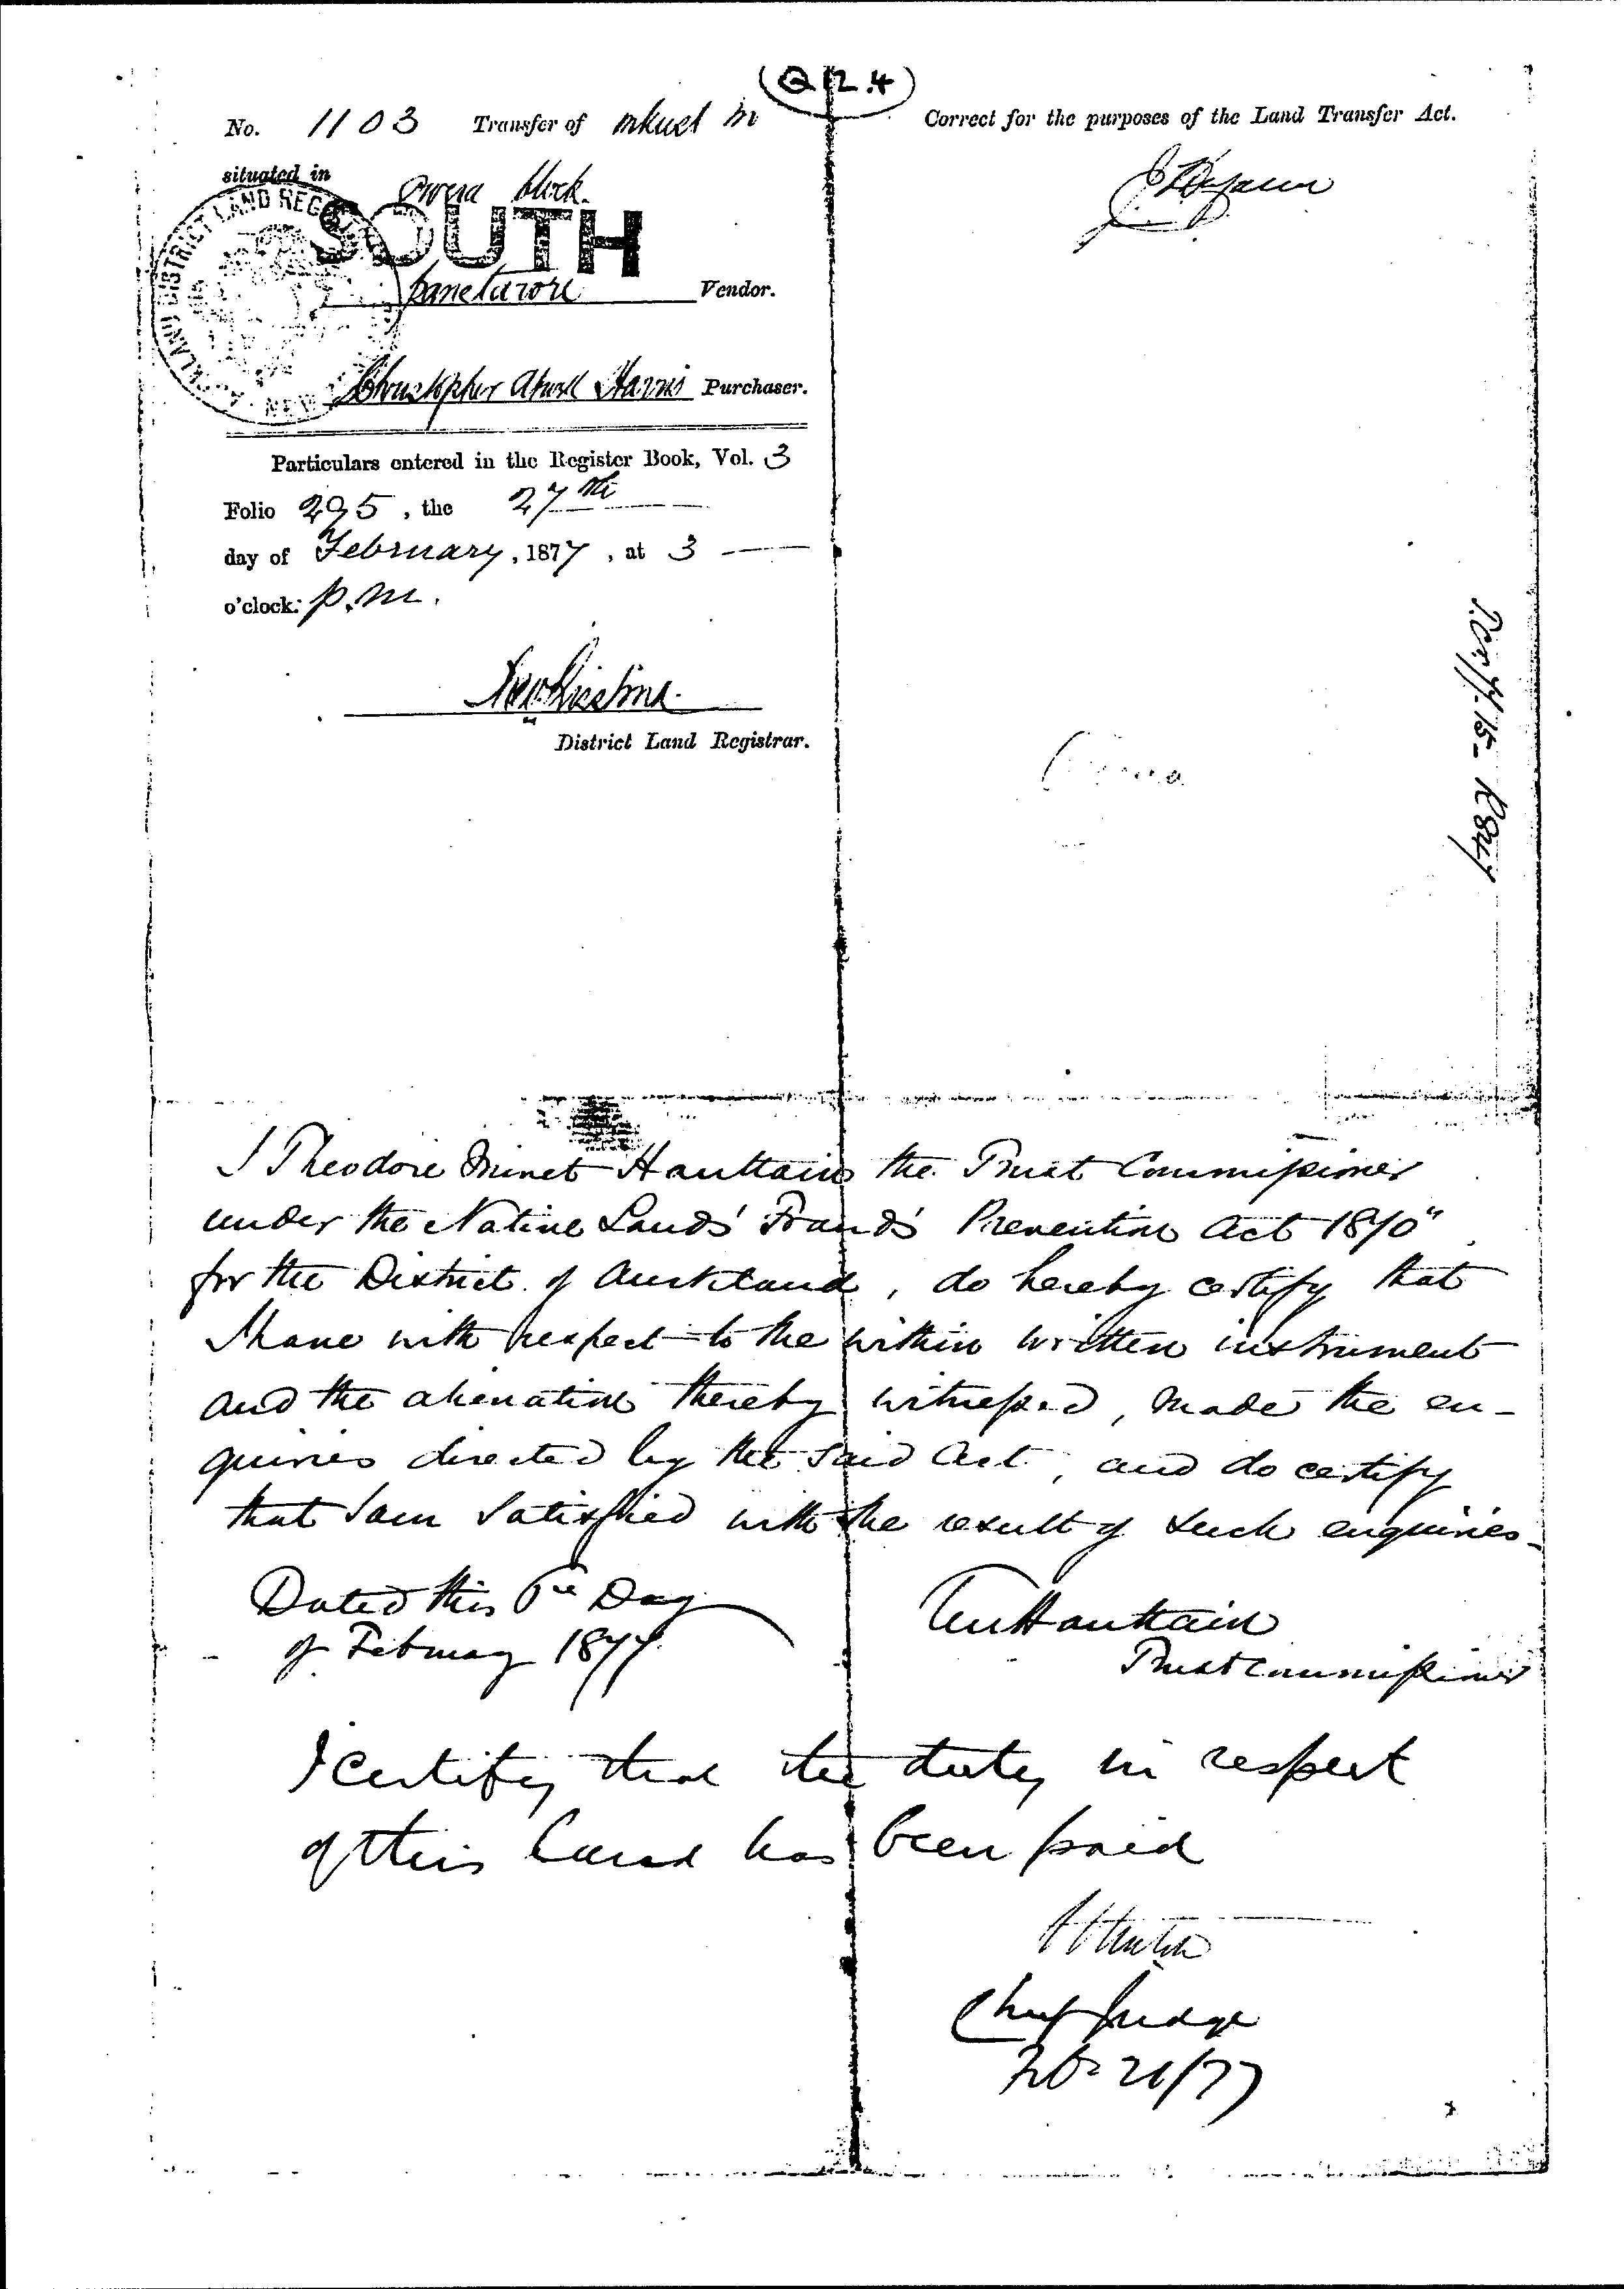 (Q 12.4)
No. 1103 Transfer of in
situated in
Owera block.
SOUTH
DISTRICT LAND REG
NEW
Vendor.
Christopher Harris Purchaser.
Particulars entered in the Register Book, Vol. 3
Folio 295, the 27th
day of February, 1877, at 3
o'clock. p.m.
District Land Registrar.
Correct for the purposes of the Land Transfer Act.
I Theodore Minet Haultain the Trust Commissioner
under the Native Lands' Frauds' Prevention Act 1870"
for the District of Auckland, do hereby certify that
I have with respect to the within written instrument
and the alienation thereby witnessed, made the en-
quiries directed by the said Act, and do certify
that I am satisfied with the result of such enquiries-
Dated this Day
of February 1877.
Haultain
Trust Commissioner
I certify that the duty in respect
of this land has been paid
Chief Judge
/77